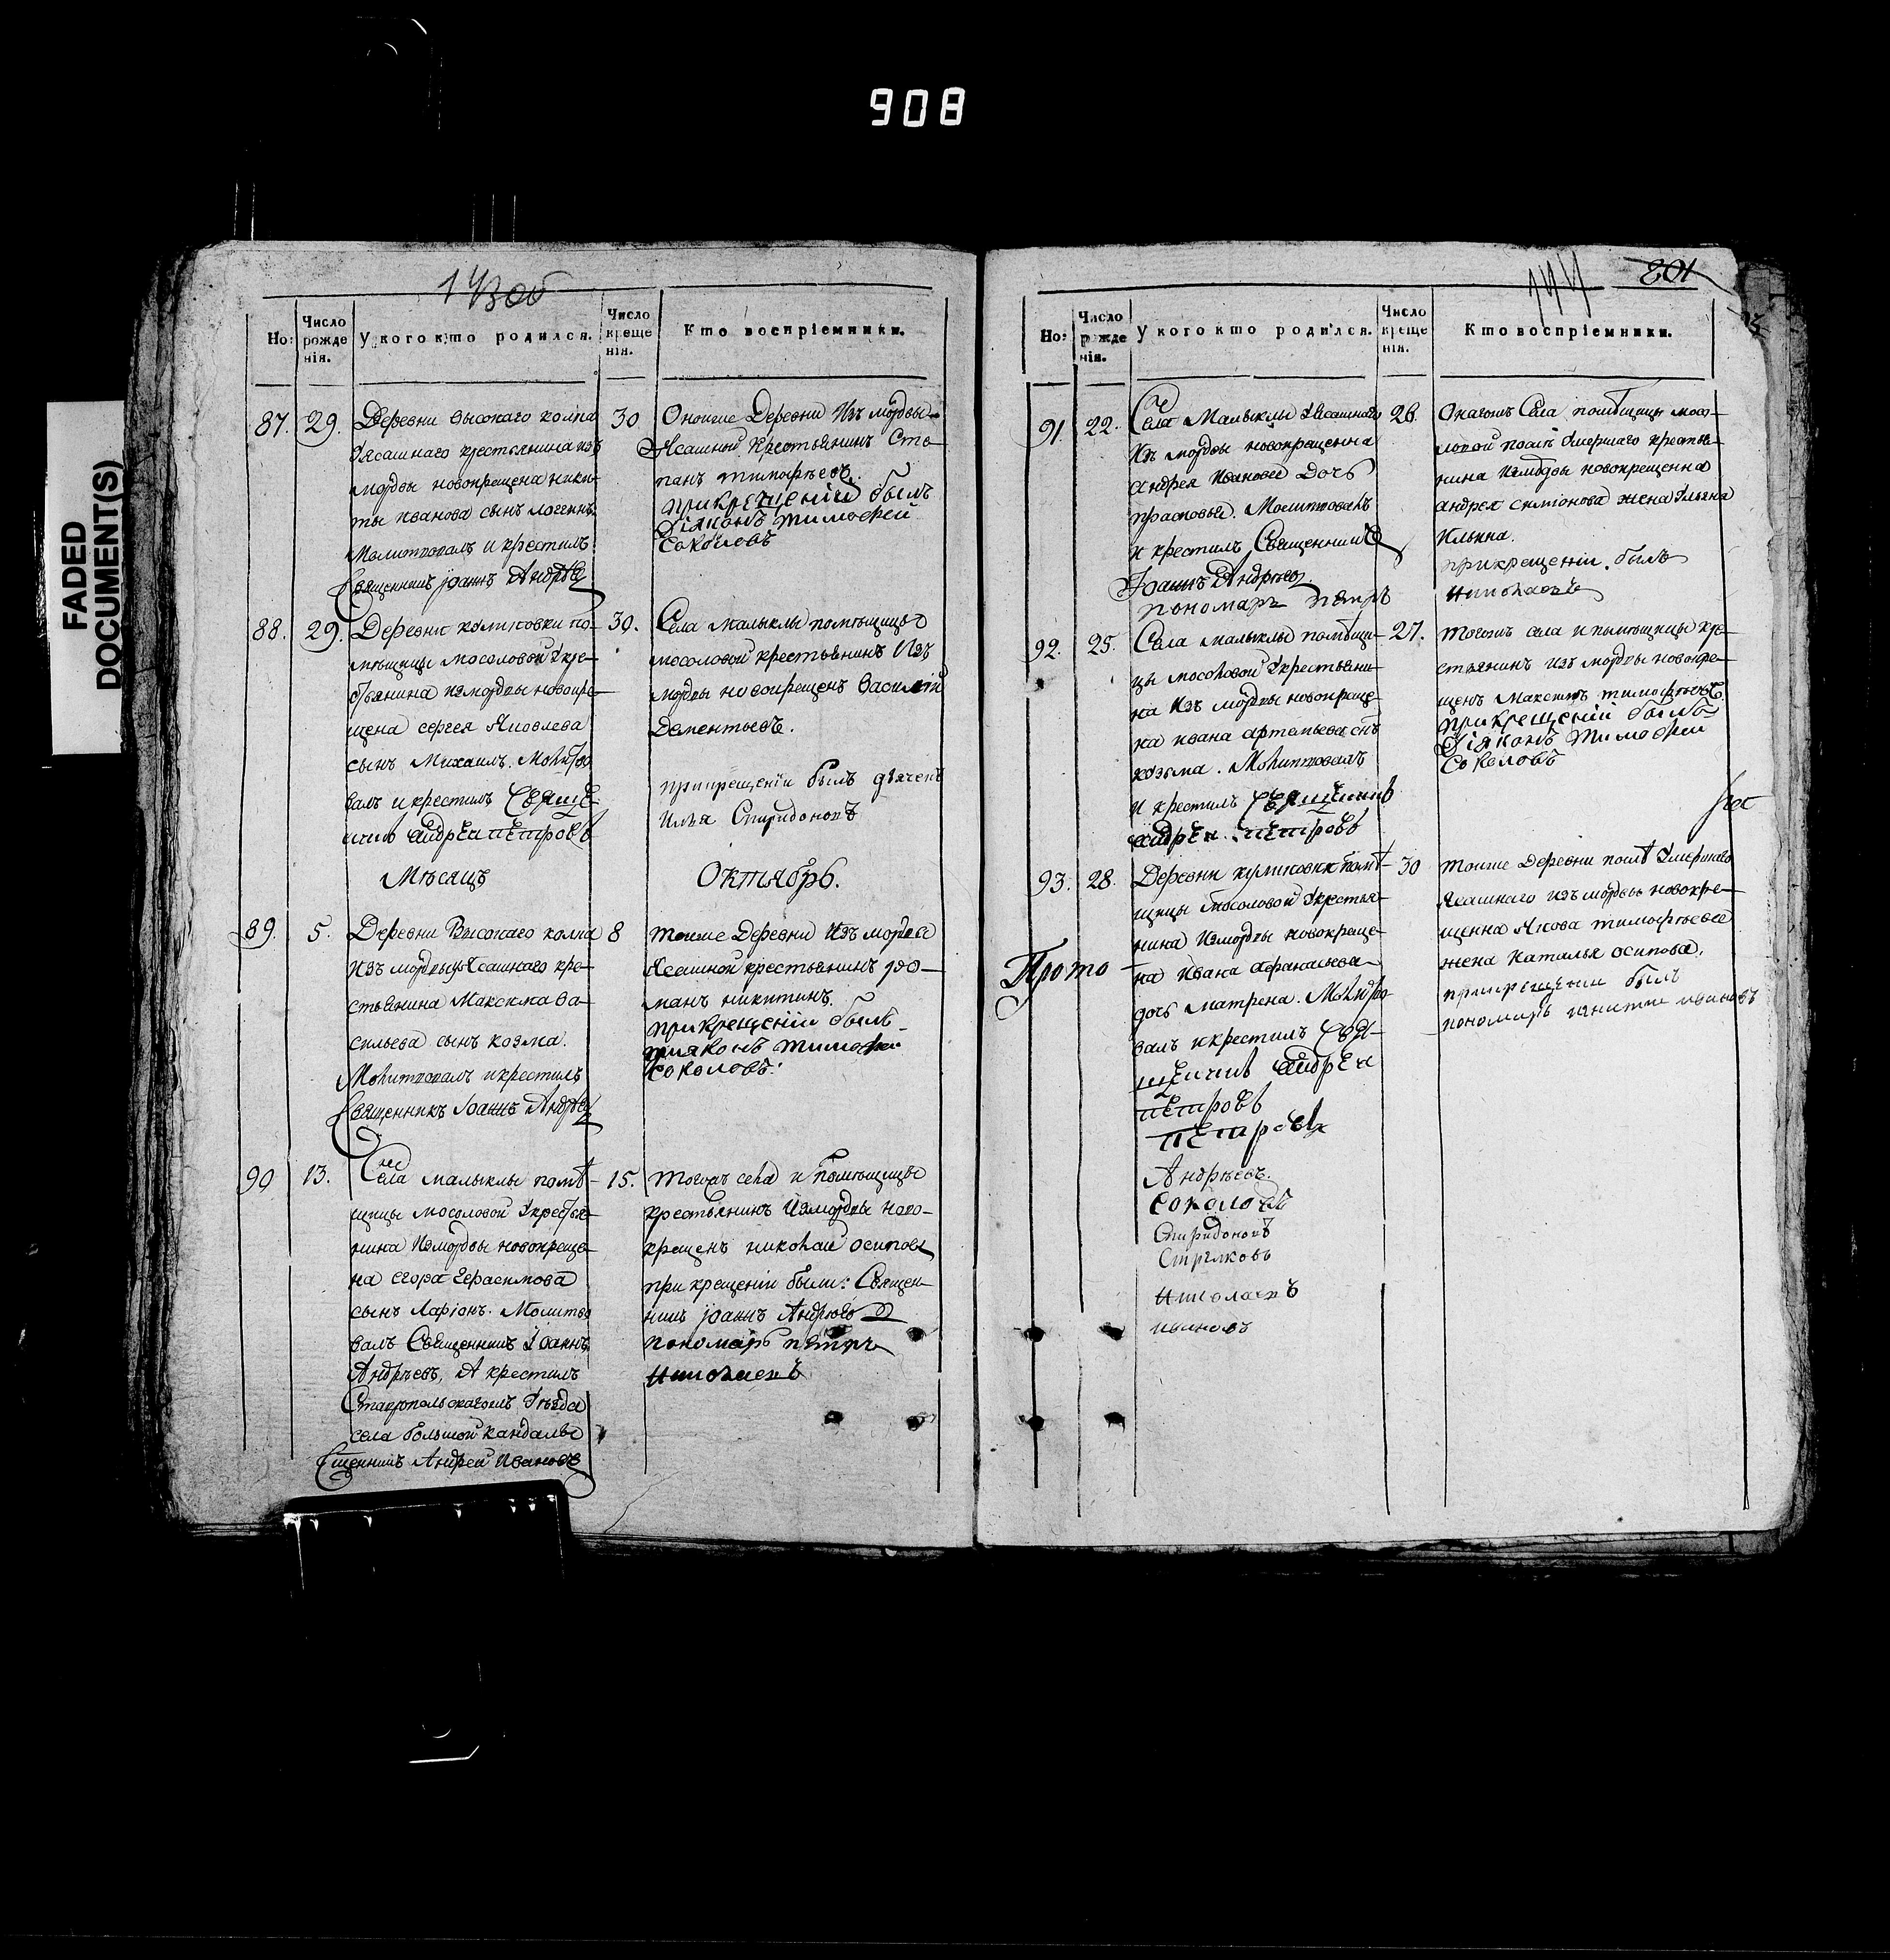 908
FADED
DOCUMENT(S)
143 об
Но:
Число рожденія.
У кого кто родился.
Число крещенія.
Кто воспріемники.
87. 29. Деревни высокаго колка
Уясашнаго крестьянина изъ
мордвы новокрещена ники-
ты иванова сынъ логгинъ
Молитвовалъ и крестилъ
Священникъ Іоаннъ Андрѣевъ
30 Оноиже Деревни Изъ мордвы
Ясашной Крестьянинъ Сте-
панъ тимофѣевъ.
прикрещеніи былъ
Діяконъ тимофей
Соколовъ
88. 29. Деревни куликовки по-
мѣщицы мосоловой Укре-
стьянина измордвы новокре-
щена сергея Яковлева
сынъ Михаилъ. Молитво
валъ и крестилъ Свяще-
никъ андреи петровъ
30. Села малыклы помѣщицы
мосоловой крестьянинъ Изъ
мордвы новокрещенъ Василий
Дементьевъ.
прикрещеніи былъ дьячекъ
Илья Спиридоновъ
Мѣсяцъ Октябрь.
89. 5. Деревни Высокаго колка
Изъ мордвы уясашнаго кре-
стьянина Максима Ва-
сильева сынъ козма.
Молитвовалъ и крестилъ
Священникъ Іоаннъ Андрѣевъ
8 тоиже Деревни Изъ мордвы
Ясашной крестьянинъ ро-
манъ никитинъ.
прикрещеніи былъ
діяконъ тимофей
Соколовъ.
90 13. Села малыклы помѣ-
щицы мосоловой Укрестья-
нина Измордвы новокреще-
на егора Герасимова
сынъ Ларіонъ. Молитво
валъ Священникъ Іоаннъ
Андрѣевъ, А крестилъ
Ставропольскагожъ Уѣзда
села большой кандалы
Сщенникъ Андрей Ивановъ
15. тогожъ села и помѣщицы
крестьянинъ Измордвы ново-
крещенъ николай осиповъ
при крещеніи были: Священ-
никъ Іоаннъ Андрѣевъ
пономарь петръ
николаевъ
144
201
Но:
Число рожденія.
У кого кто родился.
Число крещенія.
Кто воспріемники.
91. 22. Села Малыклы Уясашнаго
Изъ мордвы новокрещенна
андрея Иванова Дочь
прасковья. Молитвовалъ
и крестилъ Священникъ
Іоаннъ Андрѣевъ.
пономарь петръ
26. Онагожъ Села помѣщицы мосо-
ловой помѣ Умершаго крестья-
нина Измордвы новокрещенна
андрея симіонова жена Ульяна
Ильина.
прикрещеніи былъ
николаевъ
92. 25. Села малыклы помѣщи-
цы мосоловой Укрестьяни-
на Изъ мордвы новокреще-
на ивана артемьева снъ
козьма. Молитвовалъ
и крестилъ Священикъ
андреи петровъ
27. тогожъ села и помѣщицы кре-
стьянинъ изъ мордвы новокре-
щенъ Максимъ тимофѣевъ.
прикрещеніи былъ
Діяконъ тимофей
Соколовъ
93. 28. Деревни куликовки помѣ-
щицы Мосоловой Укрестья-
нина Измордвы новокреще-
на Ивана афанасьева
дочь матрена. Молитво-
валъ и крестилъ Свя-
щеникъ андреи
петровъ
петровъ
30 тоиже Деревни помѣ Умершаго
ясашнаго изъ мордвы новокре-
щенна Якова тимофѣева
жена наталья осипова.
прикрещении былъ
пономарь никита ивановъ
Прото
Андрѣевъ.
Соколовъ
Спиридоновъ
Стрѣлковъ
николаевъ
ивановъ